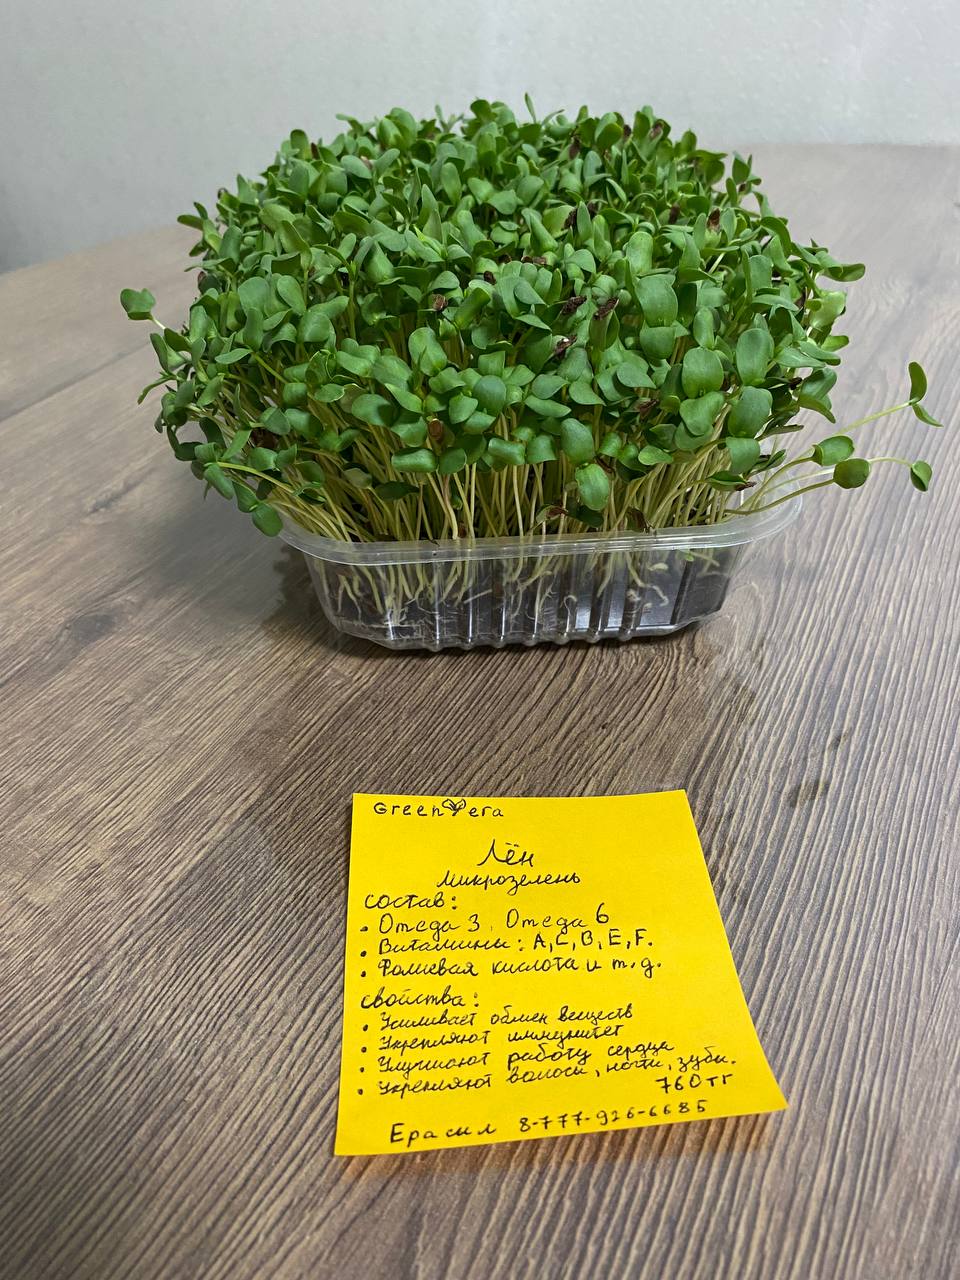 Green era
Лён
Микрозелень
состав:
• Омега 3, Омега 6
• Витамины: A, C, B, E, F.
• Фолиевая кислота и т.д.
свойства:
• Усиливает обмен веществ
• Укрепляют иммунитет
• Улучшают работу сердца
• Укрепляют волосы, ногти, зубы.
760тг
Ерасил 8-777-926-6685